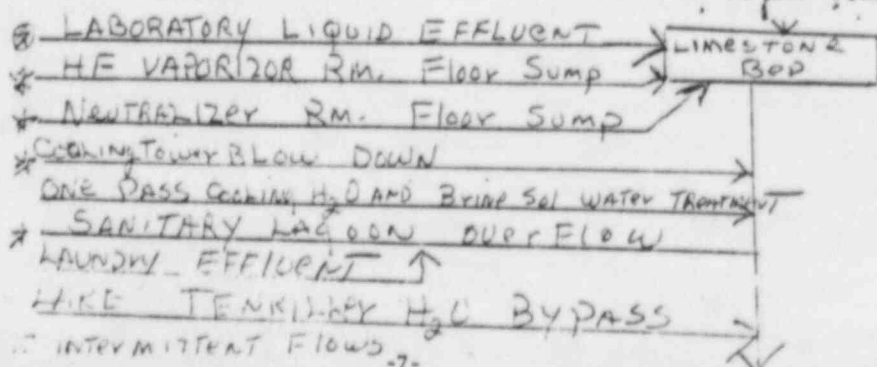 * LABORATORY LIQUID EFFLUENT
LIMESTONE
BED
* HF VAPORIZOR RM. Floor Sump
* NEUTRALIZER RM. Floor Sump
* Cooling Tower BLOW DOWN
ONE PASS Cooling H₂O AND Brine Sol WATER TREATMENT
* SANITARY LAGOON OverFLOW
LAUNDRY EFFLUENT
LAKE TENKILLER H₂O BYPASS
INTERMITTENT FLOWS
-7-